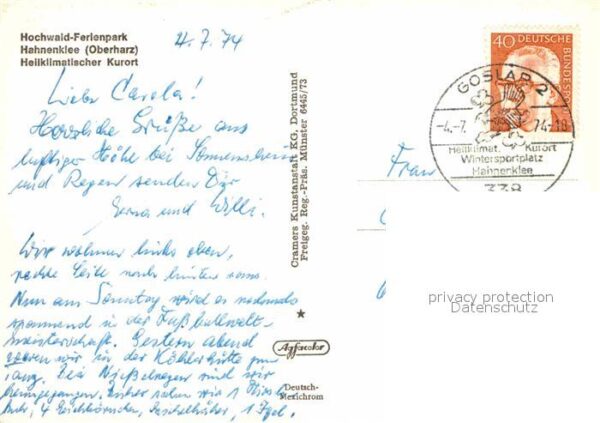 Hochwald-Ferienpark
Hahnenklee (Oberharz)
Heilklimatischer Kurort
4.7.74
Liebe Carola!
Herzliche Grüße aus
luftiger Höhe bei Sonnenschein
und Regen senden Dir
Erna und Willi.
Wir wohnen links oben,
rechte Seite nach hinten raus.
Nun am Sonntag wird es nochmals
spannend in der Fußballwelt-
meisterschaft. Gestern abend
waren wir in der Köhlerhütte zum
Tanz. Bei Nieselregen sind wir
heimgegangen. Bisher sahen wir 1
4 Eichhörnchen, Eichelhäher, 1 Igel.
Cramers Kunstanstalt KG, Dortmund
Freigeg. Reg.-Präs. Münster 6445/73
Agfacolor
Deutsch-
Mexichrom
40 DEUTSCHE
BUNDESP
GOSLAR 2
-4.-7. 74-18
Heilklimat. Kurort
Wintersportplatz
Hahnenklee
338
Frau
privacy protection
Datenschutz